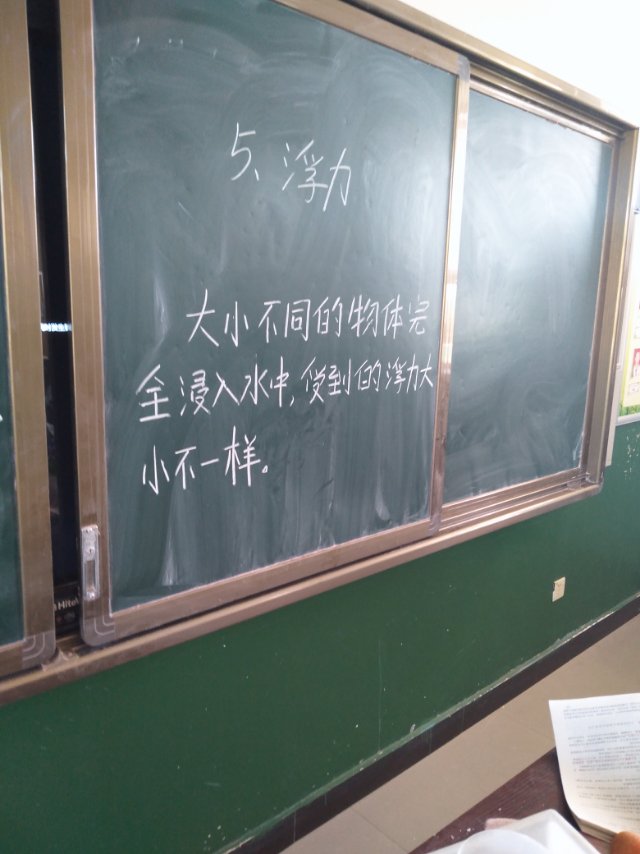 5、浮力
大小不同的物体完
全浸入水中,受到的浮力大
小不一样。